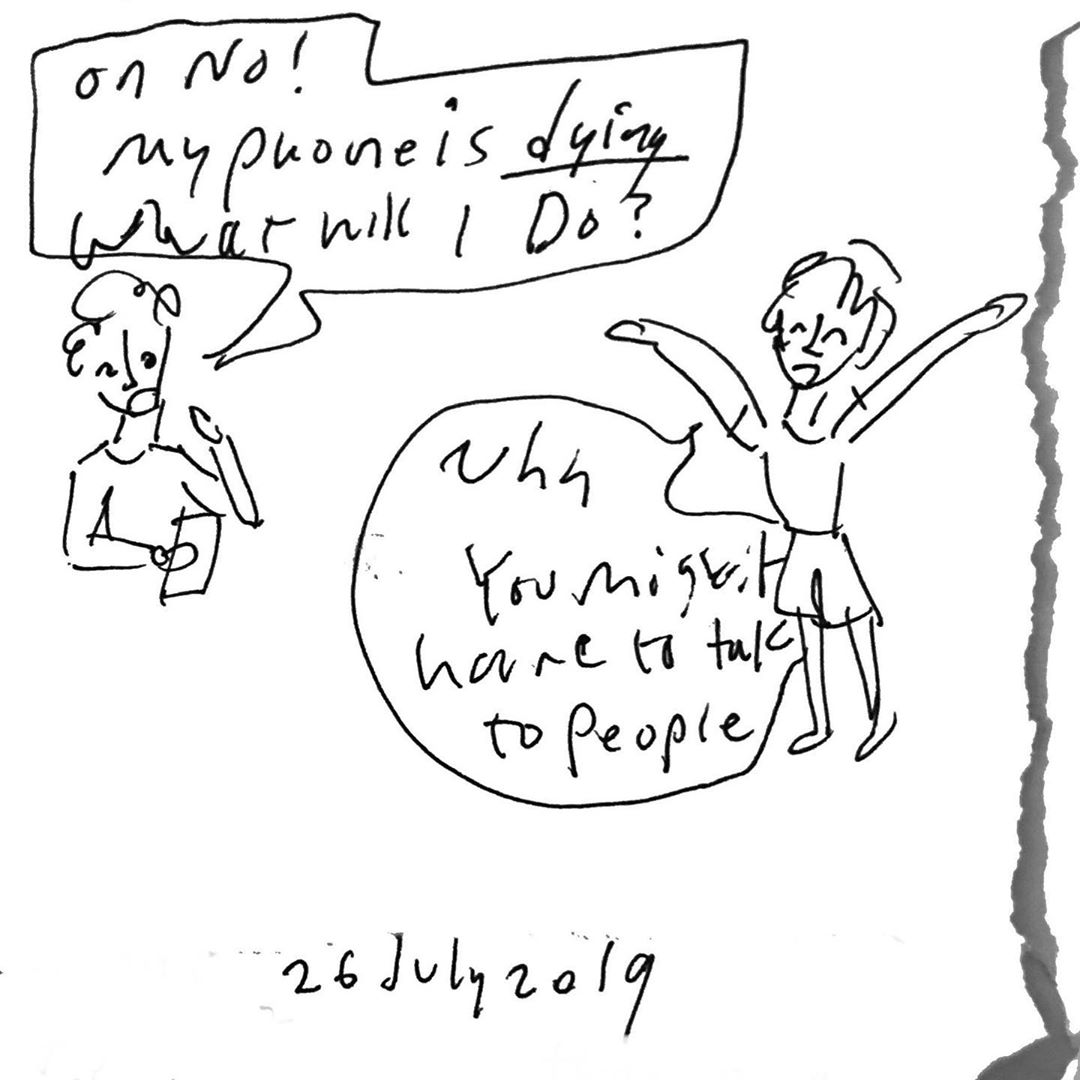 oh No!
My phone is dying
What will I Do?
Why
You might
have to talk
to people
26 July 2019